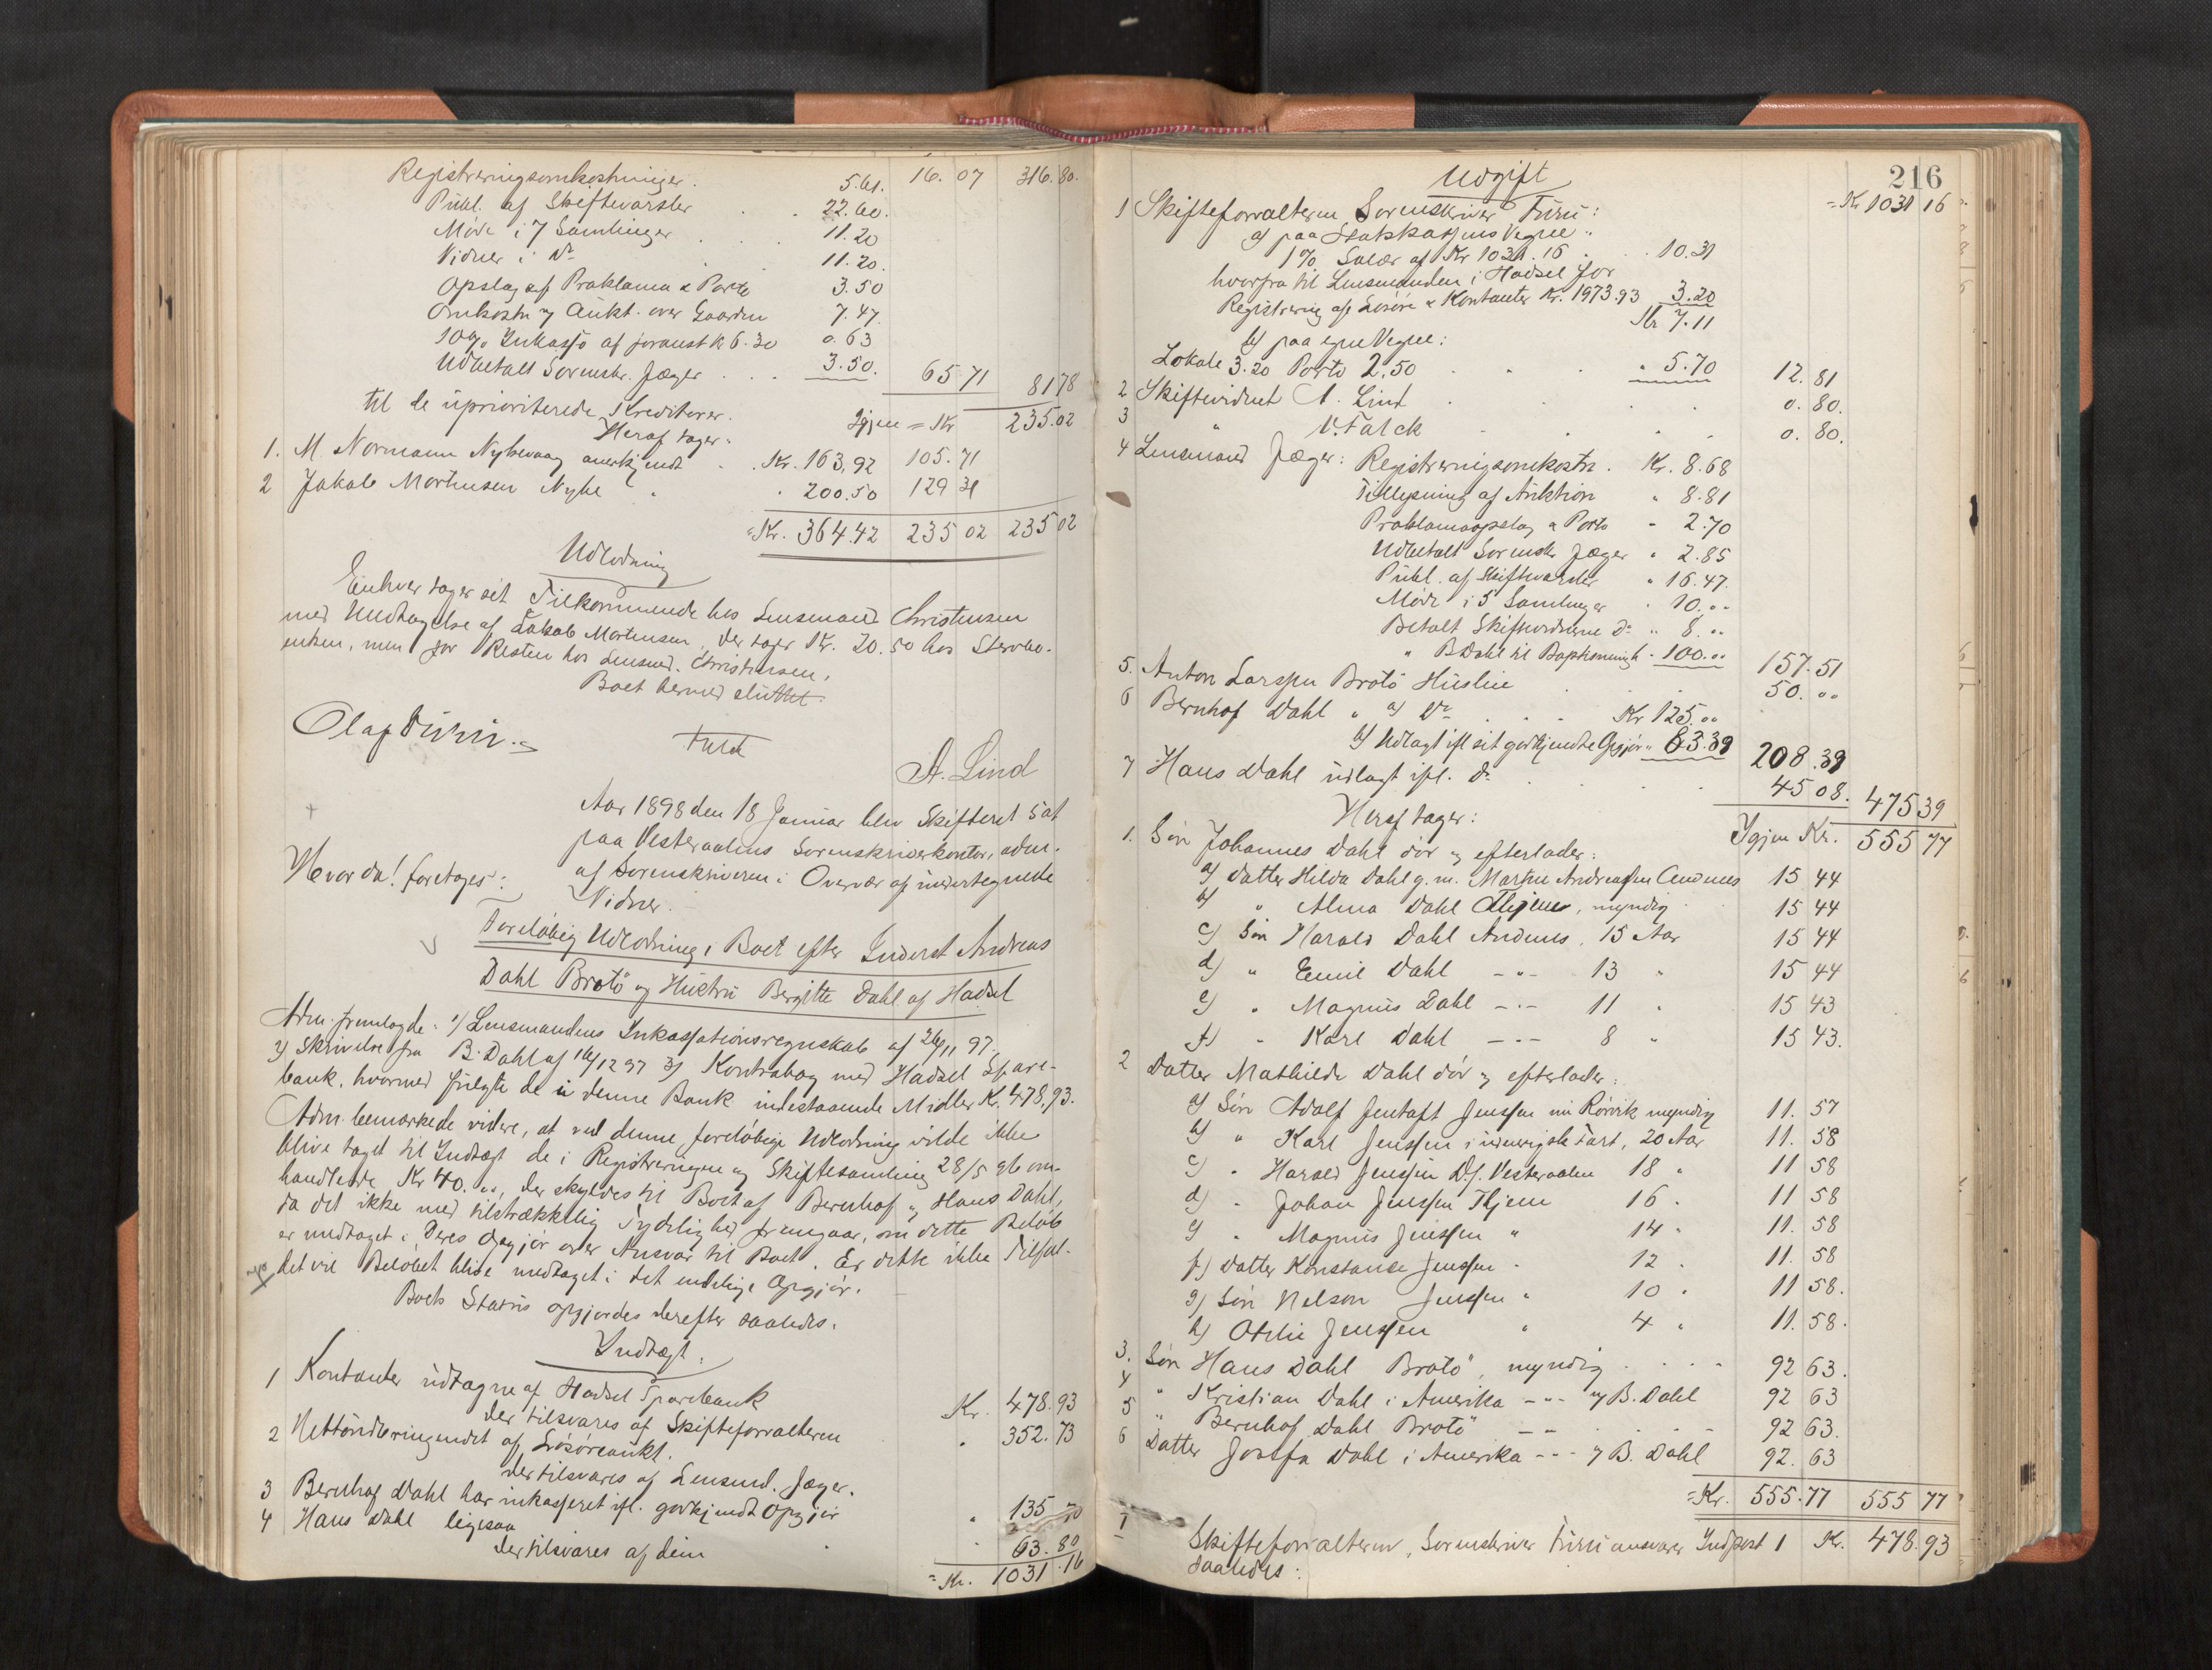 Registreringsomkostninger. 5.61. 16. 07 316.80.
Publ. af Skiftevarsler . . 22.60.
Møde i 7 Samlinger . . 11.20
Vidner i Do . 11.20.
Opslag af Proklama & Porto 3.50
Omkostn. v. Aukt. over Gaarden 7.47
10% Inkasso af foranst. K 6.30 0.63
Udbetalt Sorenskr. Jæger . . . 3.50. 65 71 81 78
til de uprioriterede Kreditorer. Igjen = Kr 235.02
Heraf tager:
1. M. Normann Nykvaag anerkjendt . . Kr. 163,92 105.71
2 Jakob Mortensen Nykv. " . 200.50 129 31
= Kr. 364.42 235 02 235 02
Udlodning
Enhver tager sit Tilkommende hos Lensmand Christensen
med Undtagelse af Jakob Mortensen, der tager Kr. 20.50 hos Stervbo-
enken, men for Resten hos Lensmd. Christensen.
Boet hermed sluttet.
Olaf Furu. Falck
A. Lind
Aar 1898 den 18 Januar blev Skifteret sat
paa Vesteraalens Sorenskriverkontor, adm.
af Sorenskriveren i Overvær af undertegnede
Vidner.
Hvorda! foretoges:
Foreløbig Udlodning i Boet efter Inderst Andreas
Dahl Brotø og Hustru Bergitte Dahl af Hadsel
Adm. fremlagde: 1) Lensmandens Inkassationsregnskab af 26/11 97.
2) Skrivelse fra B. Dahl af 16/12 97 3) Kontrabog med Hadsel Spare-
bank, hvormed fulgte de i denne Bank indestaaende Midler K. 478.93.
Adm. bemærkede videre, at ved denne foreløbige Udlodning vilde ikke
blive taget til Indtægt de i Registreringen og Skiftesamling 28/5 96 om-
handlede Kr 40. "", der skyldes til Boet af Bernhof og Hans Dahl,
da det ikke med tilstrækkelig Tydelighed fremgaar, om dette Beløb
er medtaget i Deres Opgjør over Ansvar til Boet. Er dette ikke Tilfæl-
det vil Beløbet blive medtaget i det endelige Opgjør.
Boets Status opgjordes derefter saaledes.
Indtægt.
1 Kontanter udtagne af Hadsel Sparebank
der tilsvares af Skifteforvalteren Kr. 478.93
2 Nettoudbringendet af Løsøreaukt. " 352.73
der tilsvares af Lensmd. Jæger.
3 Bernhof Dahl har inkasseret ifl. godkjendt Opgjør " 135 70
4 Hans Dahl ligesaa " 63.80
der tilsvares af dem
= Kr. 1031.16
216
Udgift
= Kr 1031 16
1 Skifteforvalteren Sorenskriver Furu:
a) paa Statskassens Vegne:
1% Salær af Kr 1031.16 . . 10.31
hvorfra til Lensmanden i Hadsel for
Registrering af Løsøre & Kontanter Kr. 1973.93 3.20
Kr 7.11
b) paa egne Vegne:
Lokale 3.20 Porto 2.50 . . . " 5.70 12. 81
2 Skiftevidnet A. Lind . . . 0. 80.
3 " V. Falck . . . . 0. 80.
4 Lensmand Jæger: Registreringsomkostn. Kr. 8.68
Tillysning af Auktion " 8.81
Proklamaopslag & Porto " 2.70
Udbetalt Sorenskr Jæger " 2.85
Publ. af Skiftevarsler " 16.47.
Møde i 5 Samlinger " 10. ""
Betalt Skiftevidnerne Do " 8. ""
" B Dahl til Bopskommingh. " 100. "" 157.51
5. Anton Larssen Brotø Husleie . . . 50. ""
6 Bernhof Dahl " a) Do . . . Kr 125. ""
b) Udlagt ifl sit godkjendte Opgjør " 83.39 208.39
7 Hans Dahl udlagt ifl. Do . . . . 45 08. 475 39
Heraf tager: Igjen Kr. 555 77
1. Søn Johannes Dahl død og efterlader:
a) Datter Hilda Dahl g. m. Martin Andreassen Andenes 15 44
b) " Alma Dahl Thjem, myndig 15 44
c) Søn Harald Dahl Andenes, 15 Aar 15 44
d) " Emil Dahl -"- 13 " 15 44
e) " Magnus Dahl -"- 11 " 15 43
f) " Karl Dahl -"- 8 " 15 43.
2 Datter Mathilde Dahl død og efterlader:
a) Søn Adolf Jentoft Jenssen nu Rørvik myndig 11. 57
b) " Karl Jenssen i udenrigsk Fart, 20 Aar 11. 58
c) " Harald Jenssen D.S. Vesteraalen 18 " 11 58
d) " Johan Jenssen Thjem 16 " 11 58
e) " Magnus Jenssen " 14 " 11. 58
f) Datter Konstanse Jenssen " 12 " 11. 58
g) Søn Nelson Jenssen " 10 " 11 58.
h) Otelie Jenssen " 4 " 11. 58.
3. Søn Hans Dahl Brotø, myndig . . . . 92 63.
4 " Kristian Dahl i Amerika -"- v/ B. Dahl 92 63
5 " Bernhof Dahl Brotø -"- . . . 92 63.
6 Datter Josefa Dahl i Amerika -"- v/ B. Dahl 92. 63
= Kr. 555.77 555 77
I Skifteforvalteren, Sorenskriver Furu ansvarer Indpost 1 Kr. 478.93
saaledes: